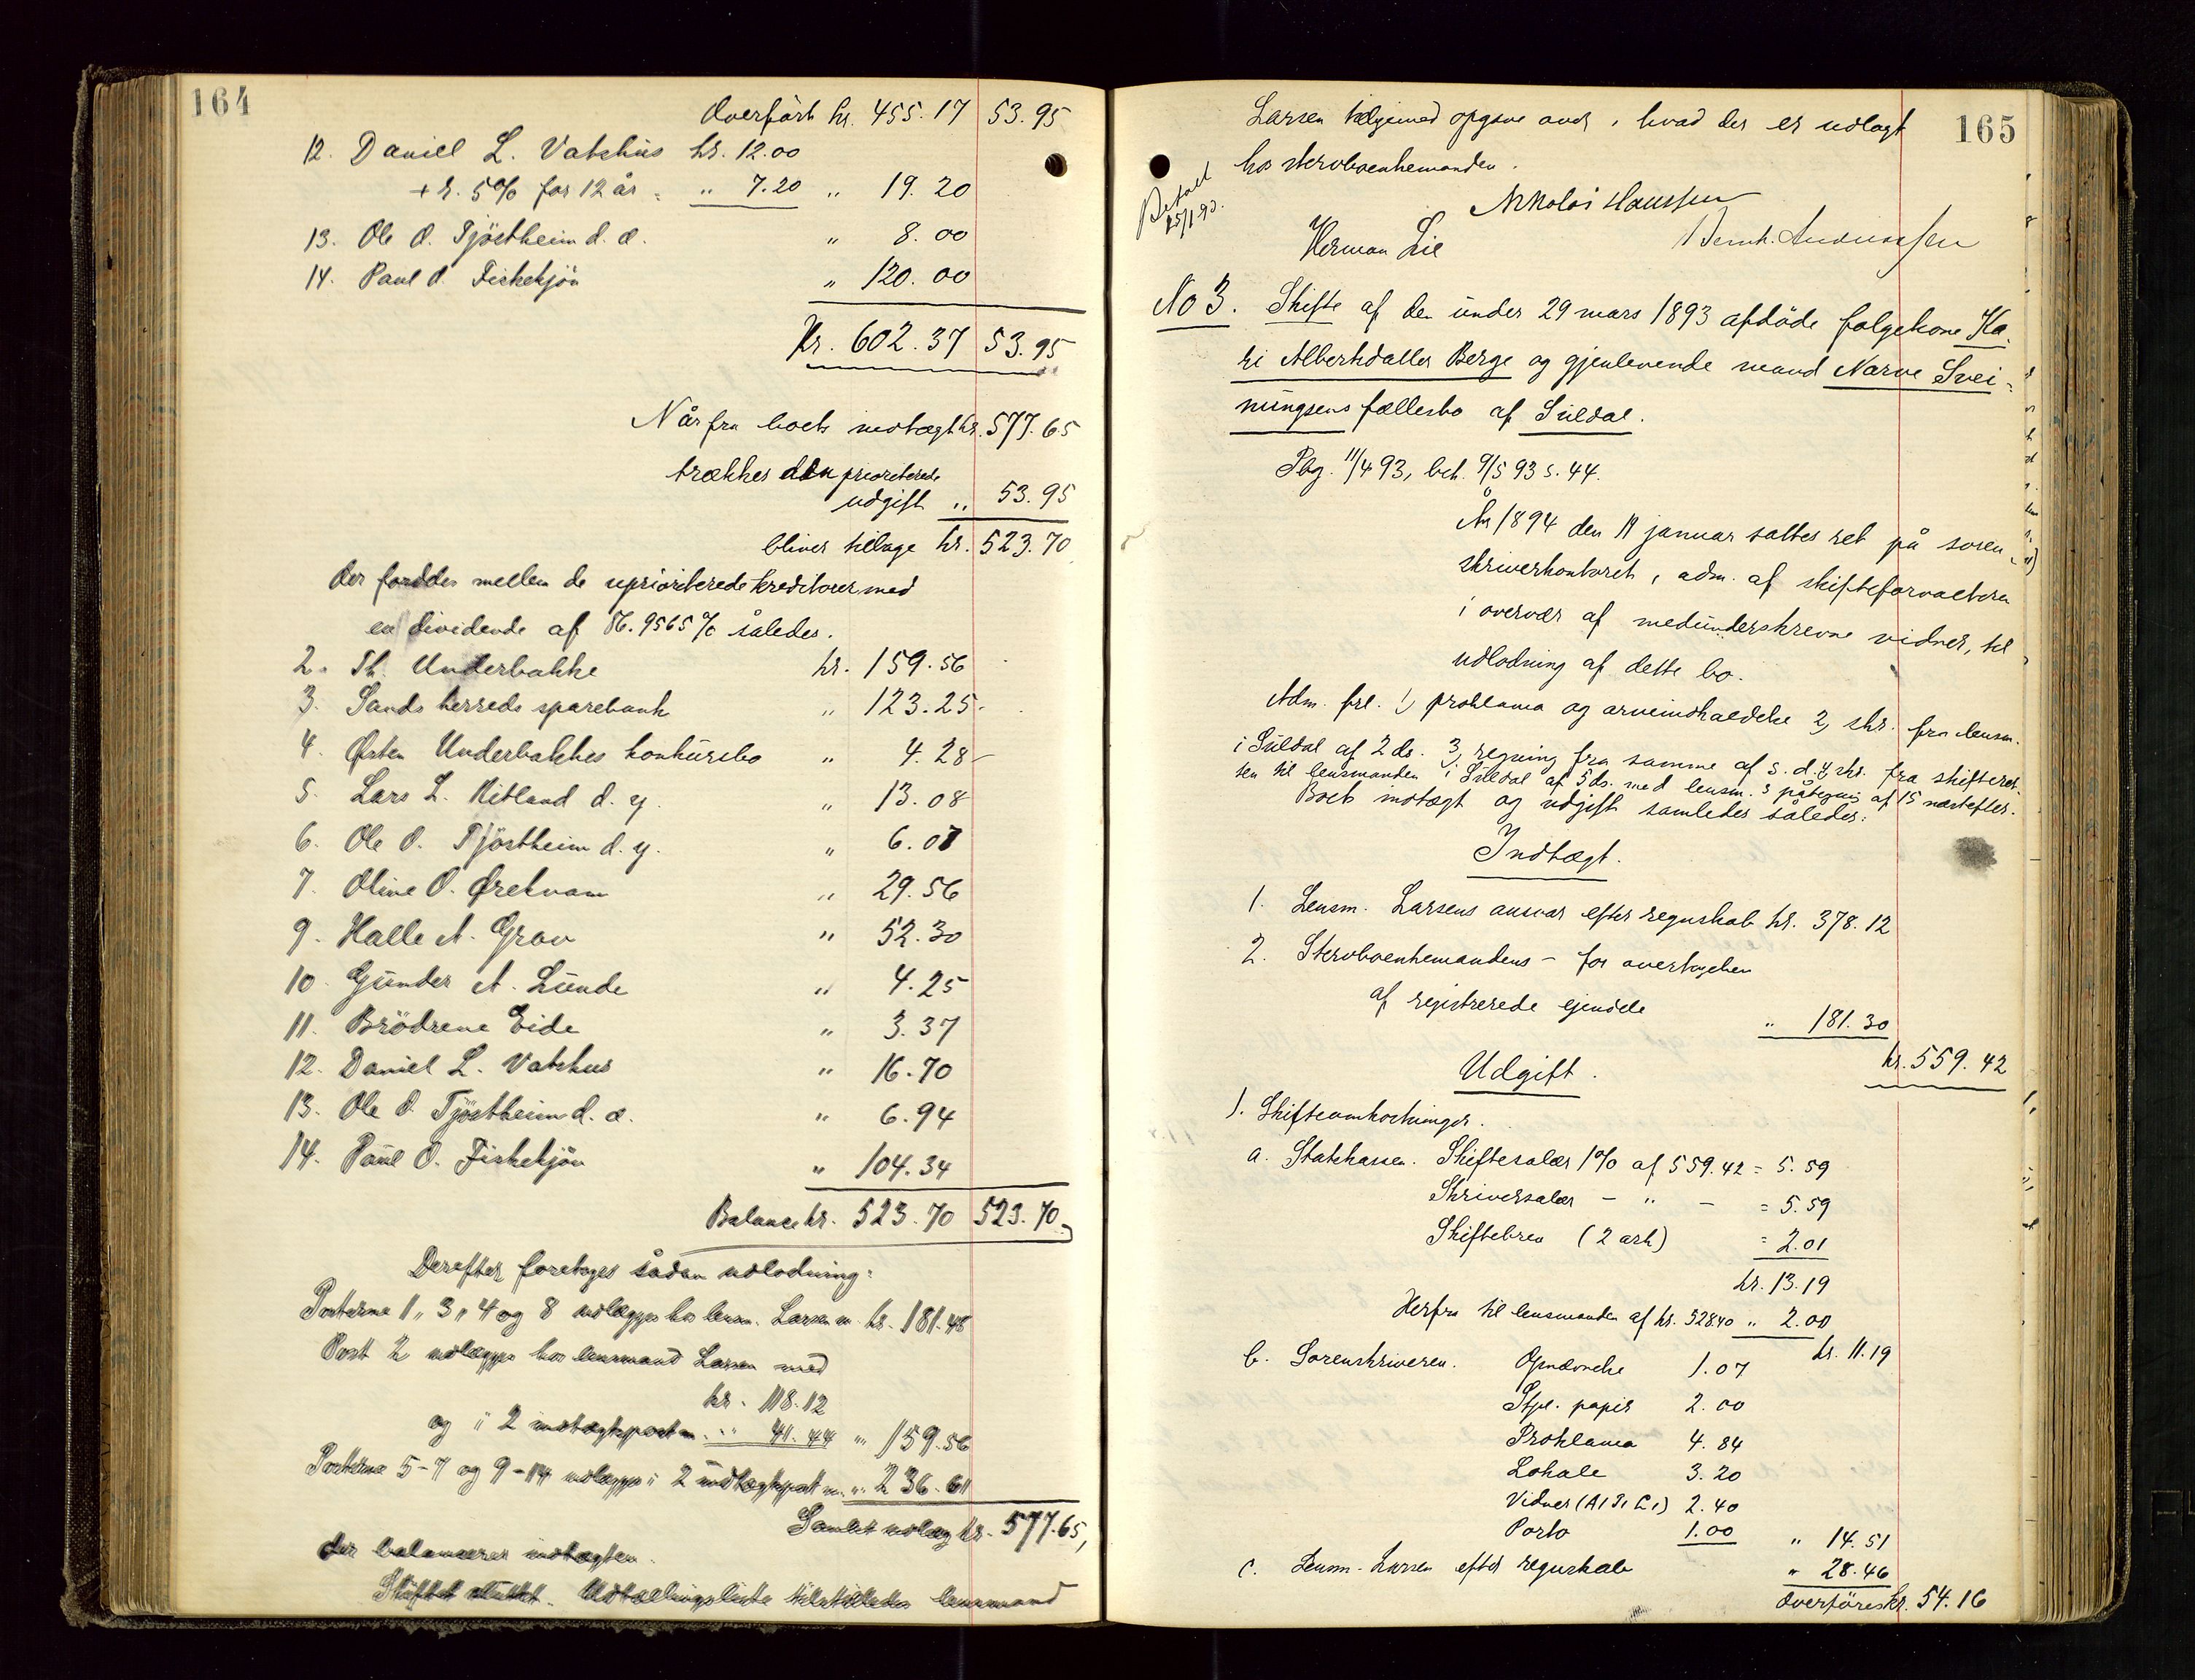 164
Overført kr. 455.17 53.95
12. Daniel L. Vatshus kr. 12.00
+ r. 5% for 12 år = " 7.20 " 19.20
13. Ole O. Tjöstheim d. æ. " 8.00
14. Paul O. Fiskekjön " 120.00
Kr. 602.37 53.95
Når fra boets indtægt kr. 577.65
trækkes den prioriterede
udgift " 53.95
bliver tilbage kr. 523.70
der fordeles mellem de uprioriterede kreditorer med
en dividende af 86.9565% således.
2. Th. Underbakke kr. 159.56
3. Sands herreds sparebank " 123.25
4. Østen Underbakkes konkursbo " 4.28
5. Lars L. Ritland d. y. " 13.08
6. Ole O. Tjöstheim d. y. " 6.07
7. Oline O. Ørekvam " 29.56
9. Halle A. Grov " 52.30
10. Gunder A. Lunde " 4.25
11. Brödrene Eide " 3.37
12. Daniel L. Vatshus " 16.70
13. Ole O. Tjöstheim d. æ. " 6.94
14. Paul O. Fiskekjön " 104.34
Balance kr. 523.70 523.70
Derefter foretages sådan udlodning:
Posterne 1, 3, 4 og 8 udlægges hos lensm. Larsen m. kr. 181.48
Post 2 udlægges hos lensmand Larsen med
kr. 118.12
og i 2 indtægtspost m. " 41.44 " 159.56
Posterne 5-7 og 9-14 udlægges i 2 indtægtspost m. " 236.61
Samlet udlæg kr. 577.65,
der balancerer indtægten.
Skiftet sluttet. Udtællingsliste tilstilledes lensmand
165
Larsen tilligemed opgave over, hvad der er udlagt
hos stervboenkemanden.
Betalt
25/1 93.
Nikolai Hanssen
Herman Lie Bernh. Andersssen
No 3. Skifte af den under 29 mars 1893 afdöde folgekone Ka-
ri Albertsdatter Berge og gjenlevende mand Narve Svei-
nungsens fællesbo af Suldal.
Pbg. 11/4 93, beh. 9/5 93 s. 44.
År 1894 den 11 januar sattes ret på soren-
skriverkontoret, adm. af skifteforvalteren
i overvær af medunderskrevne vidner, til
udlodning af dette bo.
Adm. frl. 1, proklama og arveindkaldelse 2, skr. fra lensm.
i Suldal af 2 ds. 3, regning fra samme af s. d. 4, skr. fra skifteret-
ten til lensmanden i Suldal af 5 ds. med lensm.s påtegnig af 15 næstefter.
Boets indtægt og udgift samledes således:
Indtægt.
1. Lensm. Larsens ansvar efter regnskab kr. 378.12
2. Stervboenkemandens – for overtagelsen
af registrerede ejendele " 181.30
kr. 559.42
Udgift.
1. Skifteomkostninger.
a. Statskassen. Skiftesalær 1% af 559.42 = 5.59
Skriversalær – " – = 5.59
Skiftebrev (2 ark) = 2.01
kr. 13.19
Herfra til lensmanden af kr. 528.40 " 2.00
kr. 11.19
b. Sorenskriveren. Opnævnelse 1.07
Stpl. papir 2.00
Proklama 4.84
Lokale 3.20
Vidner 2.40
Porto 1.00 " 14.51
c. Lensm. Larsen efter regnskab " 28.46
Overføres kr. 54.16